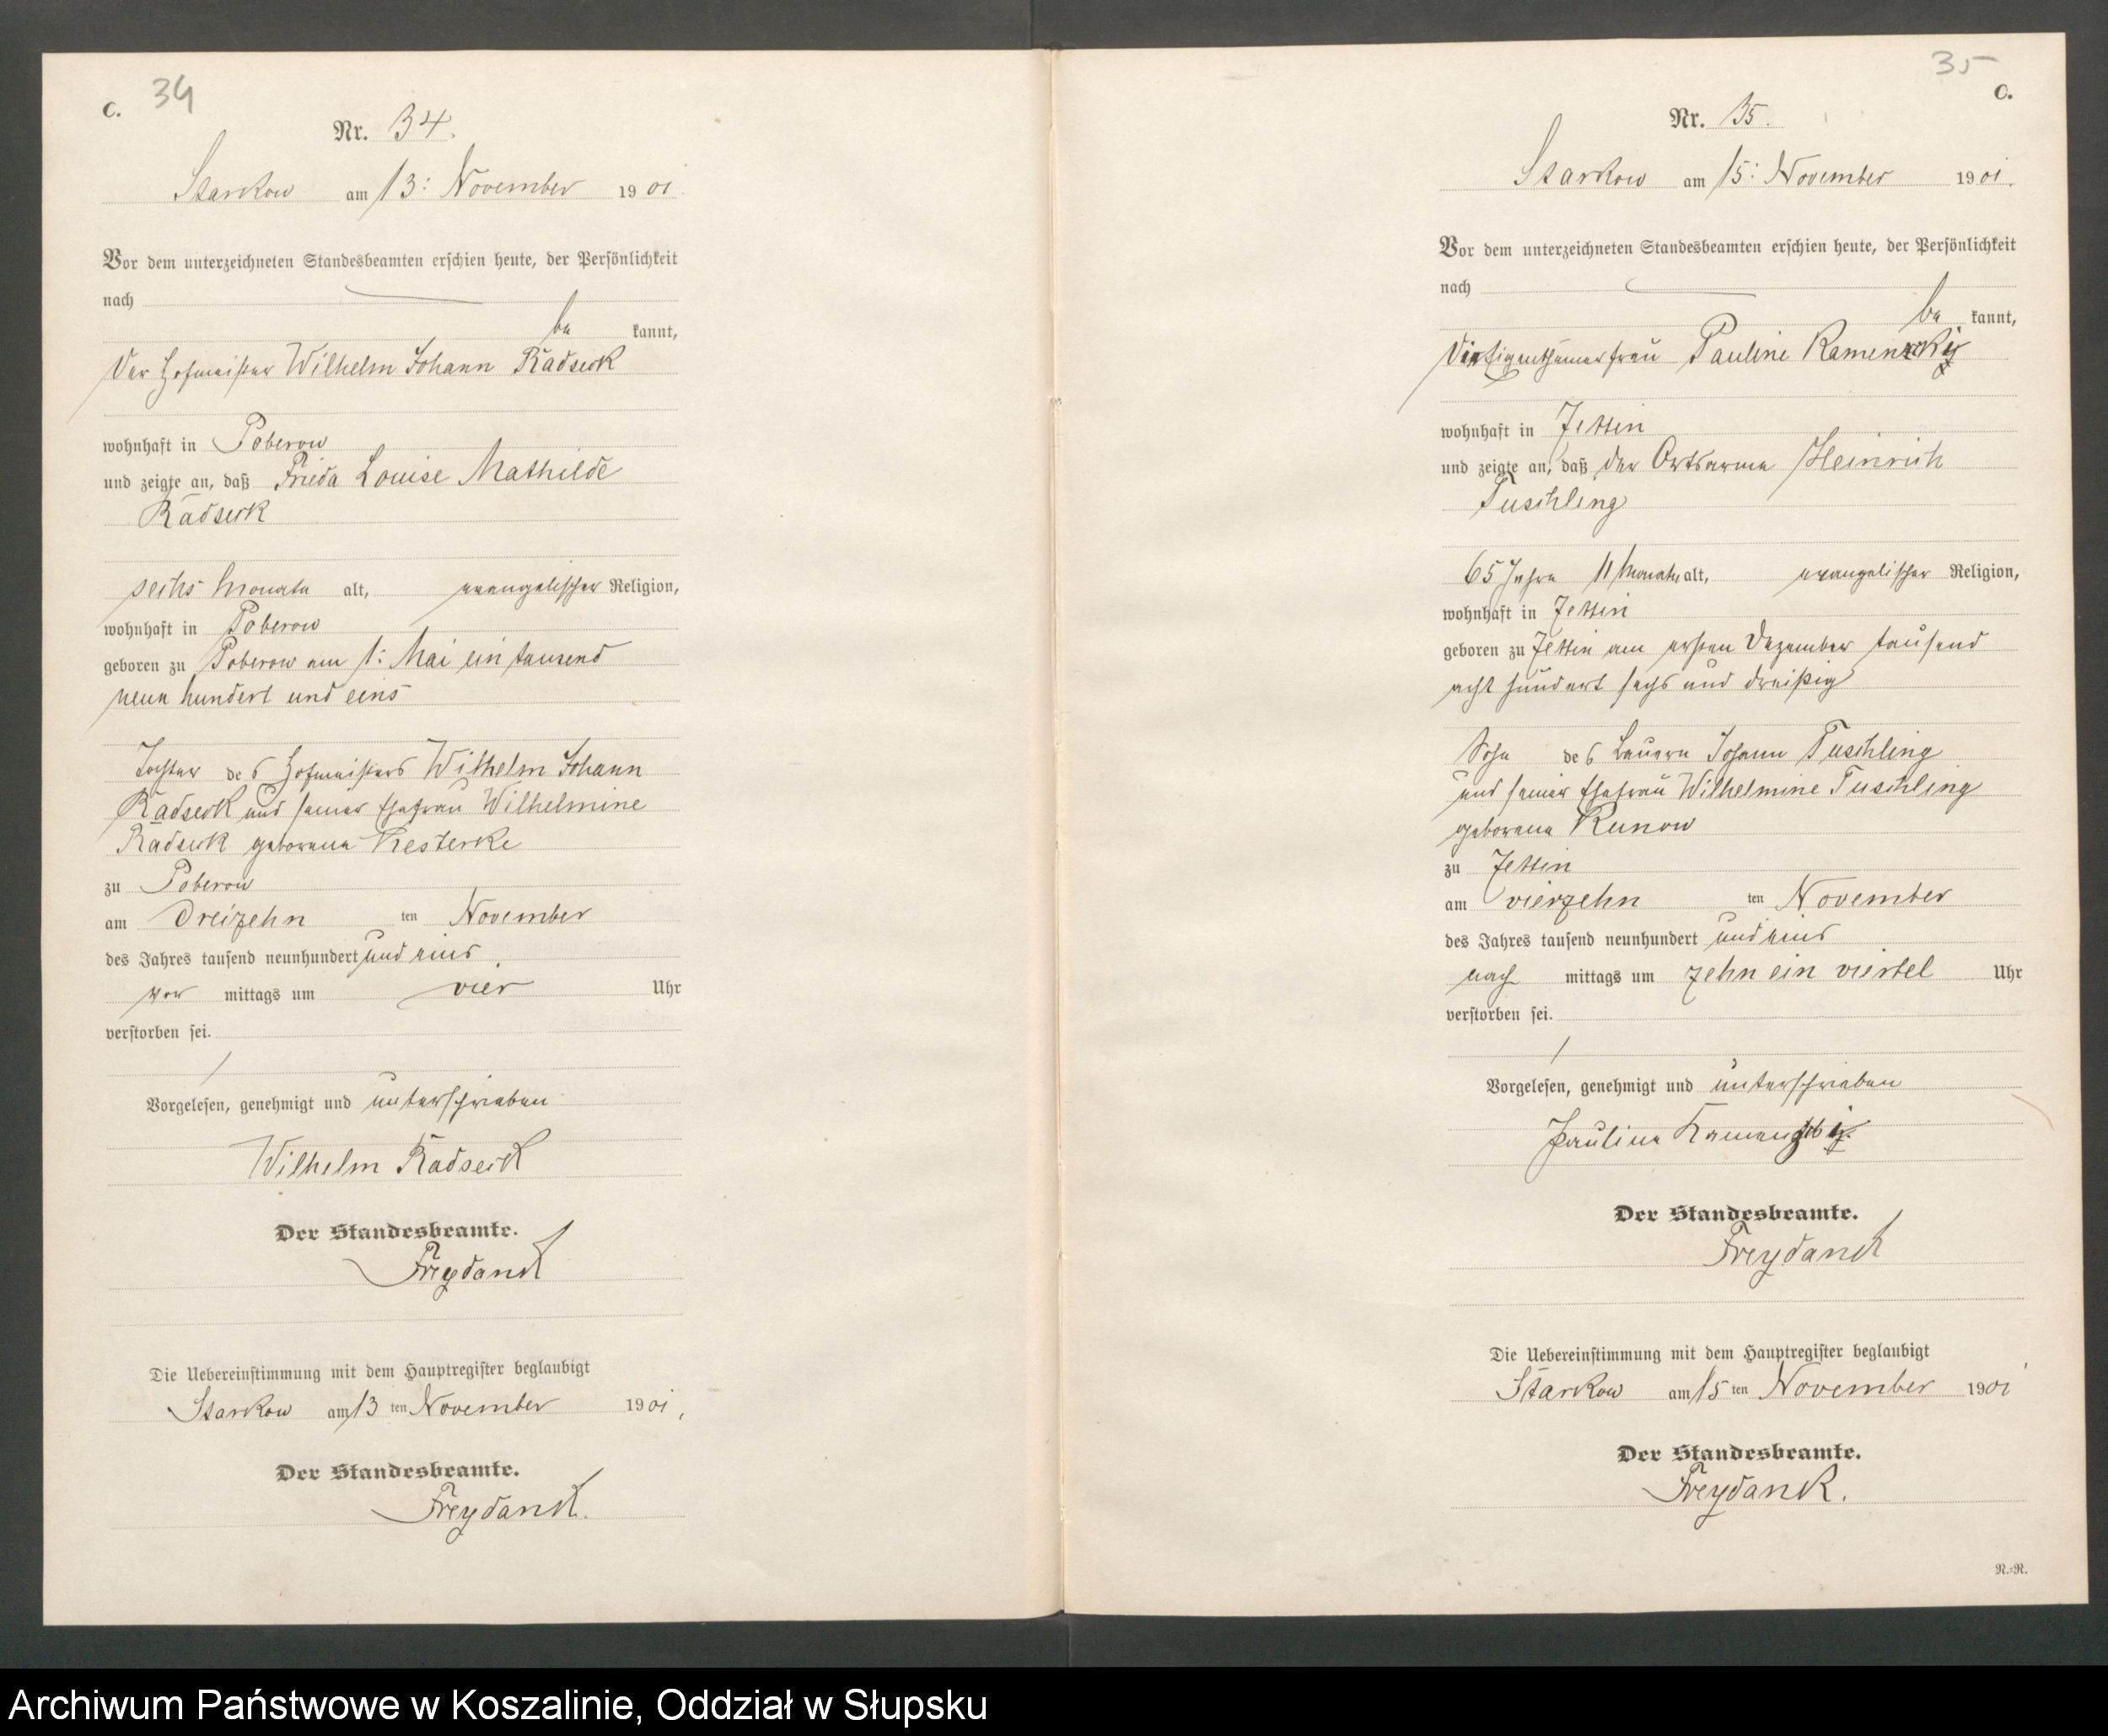 C. 34
Nr. 34.
Starkow am 13: November 1901.
Vor dem unterzeichneten Standesbeamten erschien heute, der Persönlichkeit
nach
be kannt,
Der Hofmeister Wilhelm Johann Radseck
wohnhaft in Poberow
und zeigte an, daß Frieda Louise Mathilde
Radseck
sechs Monate alt, evangelischer Religion,
wohnhaft in Poberow
geboren zu Poberow am 1: Mai ein tausend
neun hundert und eins
Tochter des Hofmeisters Wilhelm Johann
Radseck und seiner Ehefrau Wilhelmine
Radseck geborene Kesterke
zu Poberow
am Dreizehn ten November
des Jahres tausend neunhundert und eins
vor mittags um vier Uhr
verstorben sei.
Vorgelesen, genehmigt und unterschrieben
Wilhelm Radseck
Der Standesbeamte.
Freydanck
Die Uebereinstimmung mit dem Hauptregister beglaubigt
Starkow am 13 ten November 1901,
Der Standesbeamte.
Freydanck.
35 C.
Nr. 35.
Starkow am 15: November 1901.
Vor dem unterzeichneten Standesbeamten erschien heute, der Persönlichkeit
nach
be kannt,
Die Eigenthümerfrau Pauline
wohnhaft in Jettin
und zeigte an, daß der Ortsarme Heinrich
Tuschling
65 Jahre 11 Monate alt, evangelischer Religion,
wohnhaft in Jettin
geboren zu Jettin am ersten Dezember tausend
acht hundert sechs und dreißig
Sohn des Bauern Johann Tuschling
und seiner Ehefrau Wilhelmine Tuschling
geborene Kunow
zu Jettin
am vierzehn ten November
des Jahres tausend neunhundert und eins
nach mittags um zehn ein viertel Uhr
verstorben sei.
Vorgelesen, genehmigt und unterschrieben
Pauline
Der Standesbeamte.
Freydanck
Die Uebereinstimmung mit dem Hauptregister beglaubigt
Starkow am 15 ten November 1901
Der Standesbeamte.
Freydanck.
N.-N.
Archiwum Państwowe w Koszalinie, Oddział w Słupsku